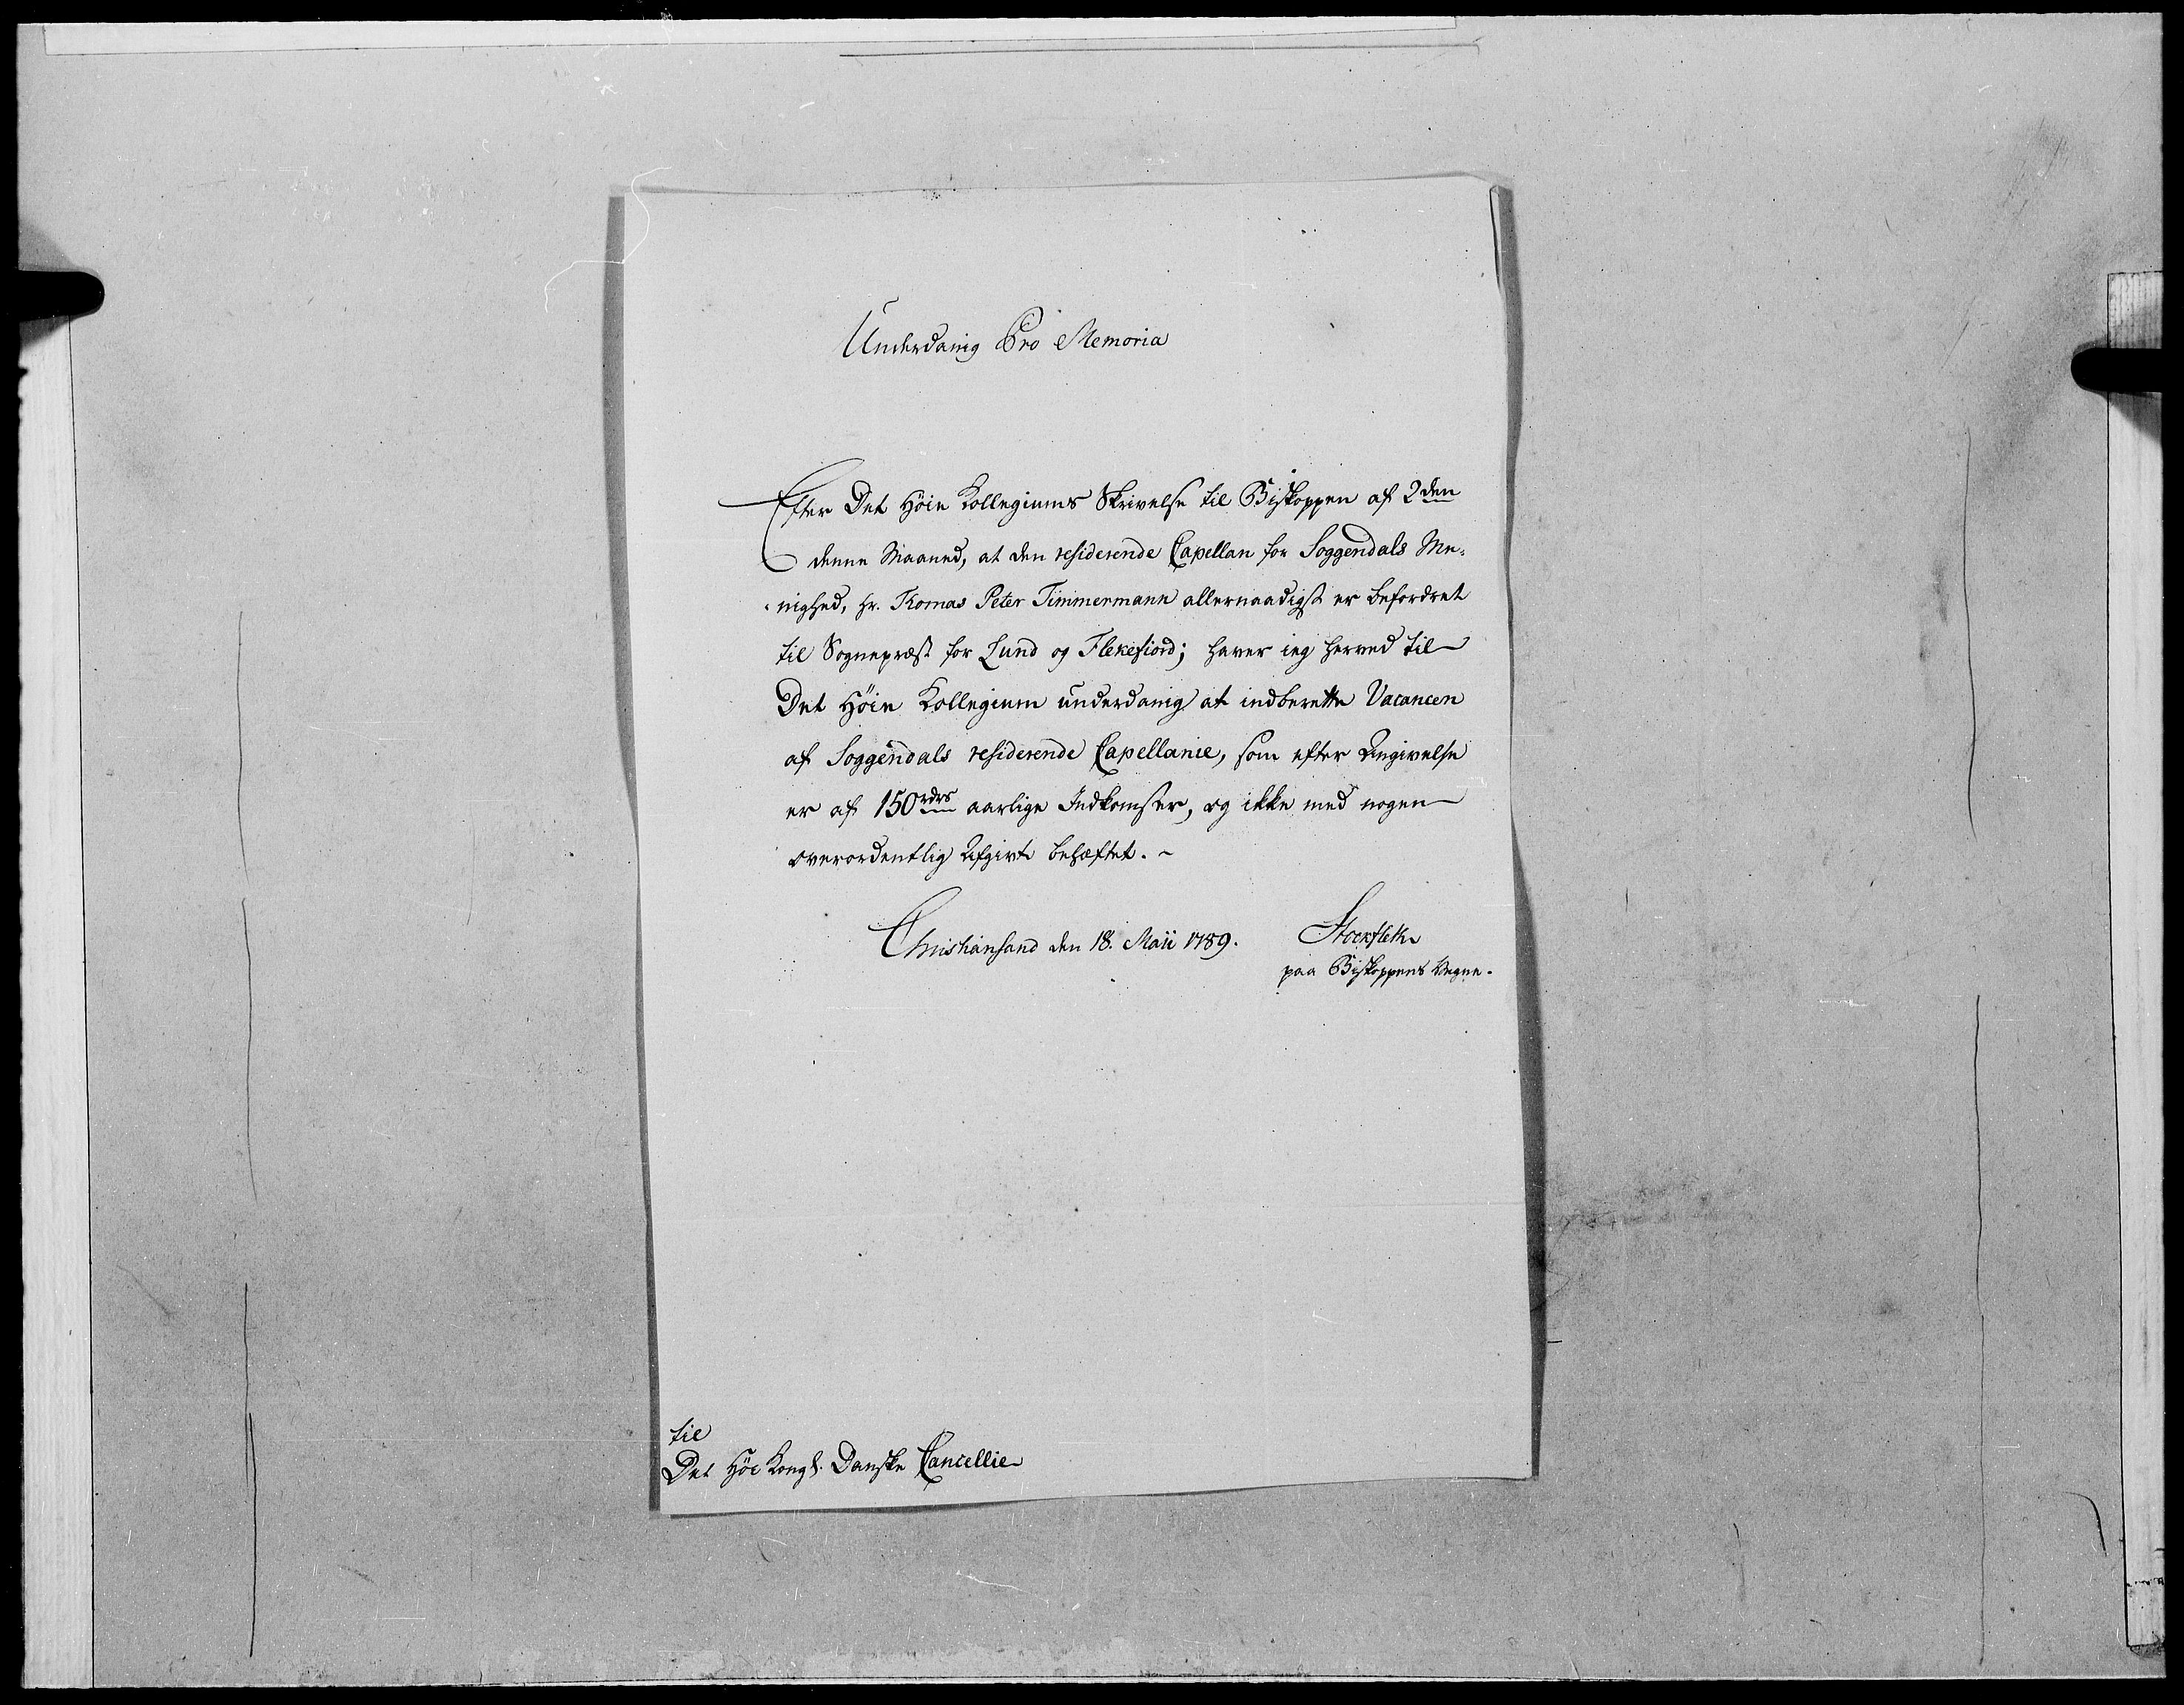 Underdanig Pro Memoria
Efter Det Høie Kollegiums Skrivelse til Biskoppen af 2den
denne Maaned, at den residerende Capellan for Soggendals Me-
-nighed, Hr. Thomas Peter Timmermann allernaadigst er befordret
til Sognepræst for Lund og Flekefiord; haver ieg herved til
Det Høie Kollegium underdanig at indberette Vacancen
af Soggendals residerende Capellanie, som efter Angivelse
er af 150 rdrs aarlige Indkomster, og ikke med nogen
overordentlig Afgivt behæftet. ~
Christiansand den 18. Maii 1789. Stockfleth
paa Biskoppens Vegne.
til
Det Høie Kongl. Danske Cancellie